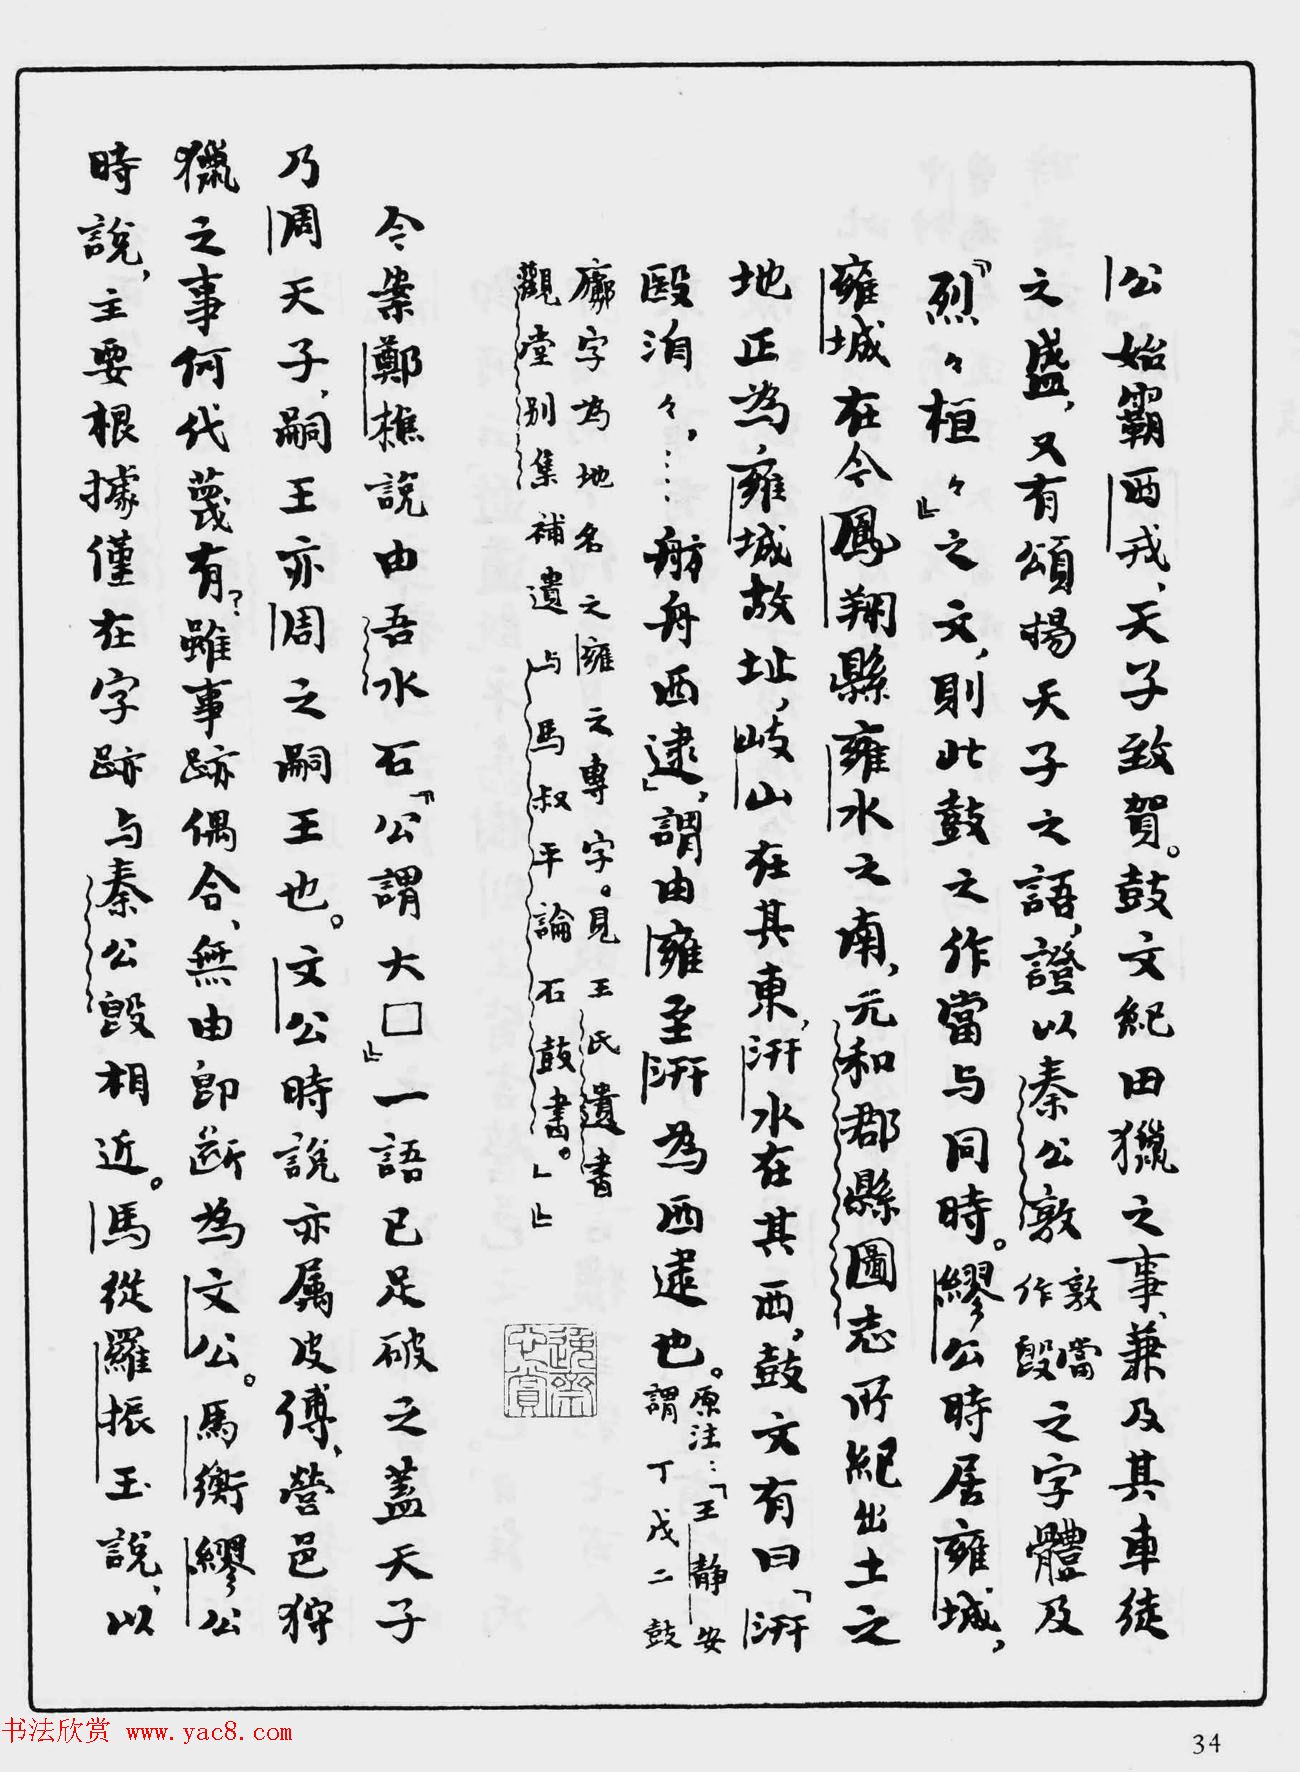 公始霸西戎、天子致賀。鼓文紀田獵之事、兼及其車徒
之盛，又有頌揚天子之語，證以秦公敦敦當作毁之字體及
『烈々桓々』之文，則此鼓之作當与同時。繆公時居雍城，
雍城在今鳳翔縣雍水之南，元和郡縣圖志所紀出土之
地正為雍城故址，岐山在其東，汧水在其西，鼓文有曰「汧
殹洎々，……舫舟西逮」，謂由雍至汧為西逮也。原注：「王靜安謂丁戊二鼓
廓字為地名之雍之專字。見王氏遺書
觀堂别集補遺与馬叔平論石鼓書。」』
今案鄭樵說由吾水石『公謂大□』一語已足破之蓋天子
乃周天子，嗣王亦周之嗣王也。文公時說亦属皮傅、營邑狩
獵之事何代蔑有？雖事跡偶合、無由即斷為文公。馬衡繆公
時說，主要根據僅在字跡与秦公毁相近。馬從羅振玉說，以
34
书法欣赏 www.yac8.com